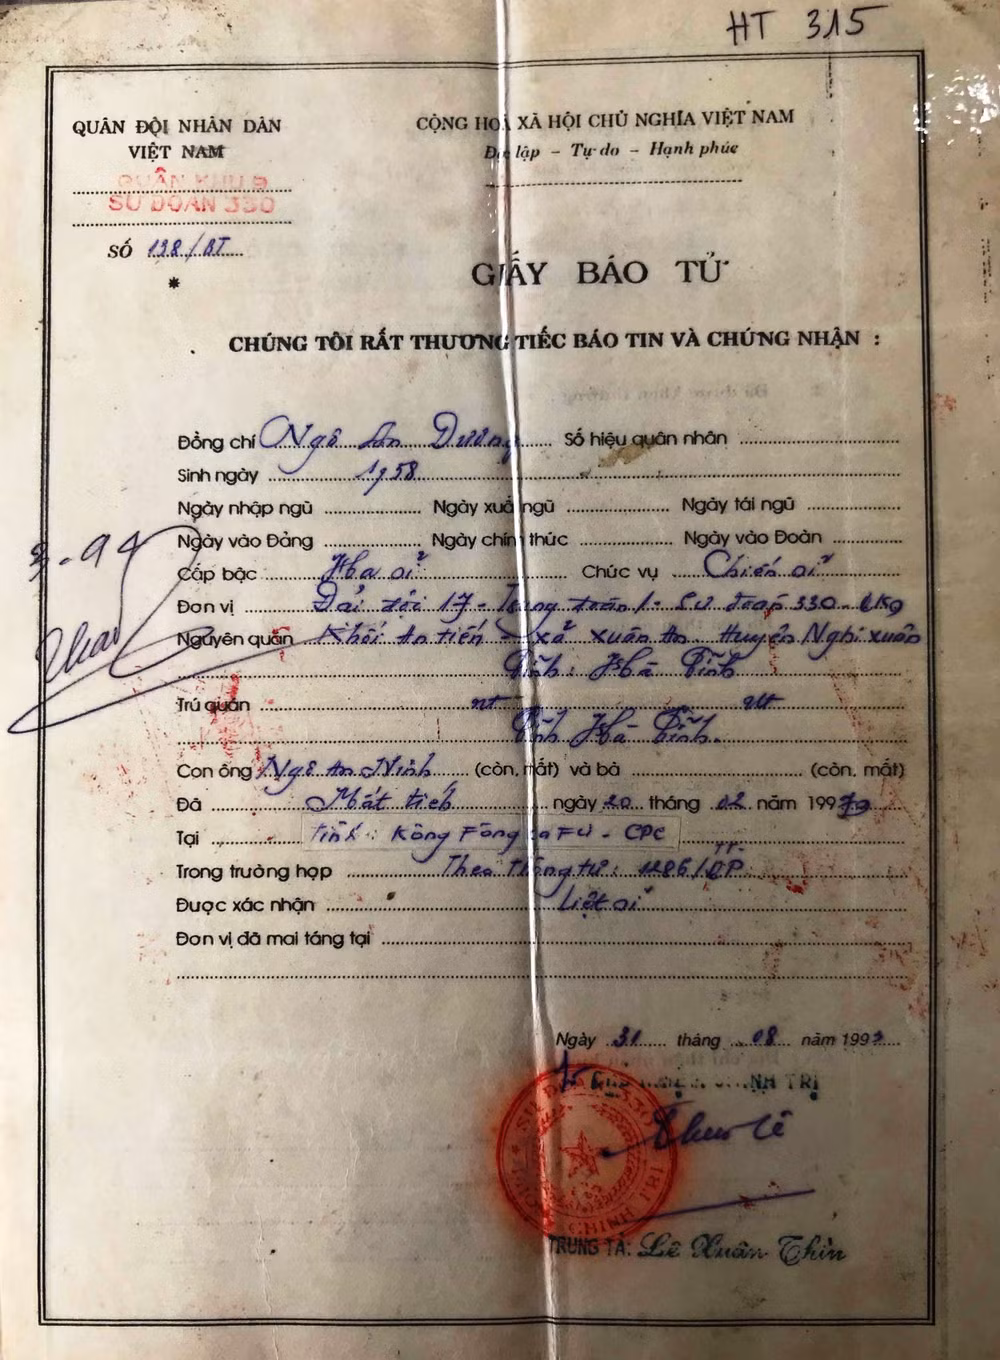 HT 315
QUÂN ĐỘI NHÂN DÂN
VIỆT NAM
QUÂN KHU 9
SƯ ĐOÀN 330
SỐ 198/BT
*
CỘNG HOÀ XÃ HỘI CHỦ NGHĨA VIỆT NAM
Độc lập - Tự do - Hạnh phúc
GIẤY BÁO TỬ
CHÚNG TÔI RẤT THƯƠNG TIẾC BÁO TIN VÀ CHỨNG NHẬN :
Đồng chí Ngô An Dương Số hiệu quân nhân
Sinh ngày 1958
Ngày nhập ngũ Ngày xuất ngũ Ngày tái ngũ
Ngày vào Đảng Ngày chính thức Ngày vào Đoàn
Cấp bậc Hạ sĩ Chức vụ Chiến sĩ
Đơn vị Đại đội 17 - Trung đoàn 1 - Sư đoàn 330 - QK9
Nguyên quán Khối An tiến - xã Xuân An - Huyện Nghi xuân
Tỉnh: Hà Tĩnh
Trú quán nt nt
Tỉnh Hà Tĩnh.
Con ông Ngô An Ninh (còn, mất) và bà (còn, mất)
Đã Mất tích ngày 20 tháng 02 năm 1979
Tại Tỉnh: Kông Fông FU - CPC
Trong trường hợp Theo thông tư: 1286/QP
TT
Được xác nhận Liệt sĩ
Đơn vị đã mai táng tại
Ngày 31 tháng 08 năm 1993
CHÍNH TRỊ
TRUNG TÁ: Lê Xuân Thìn